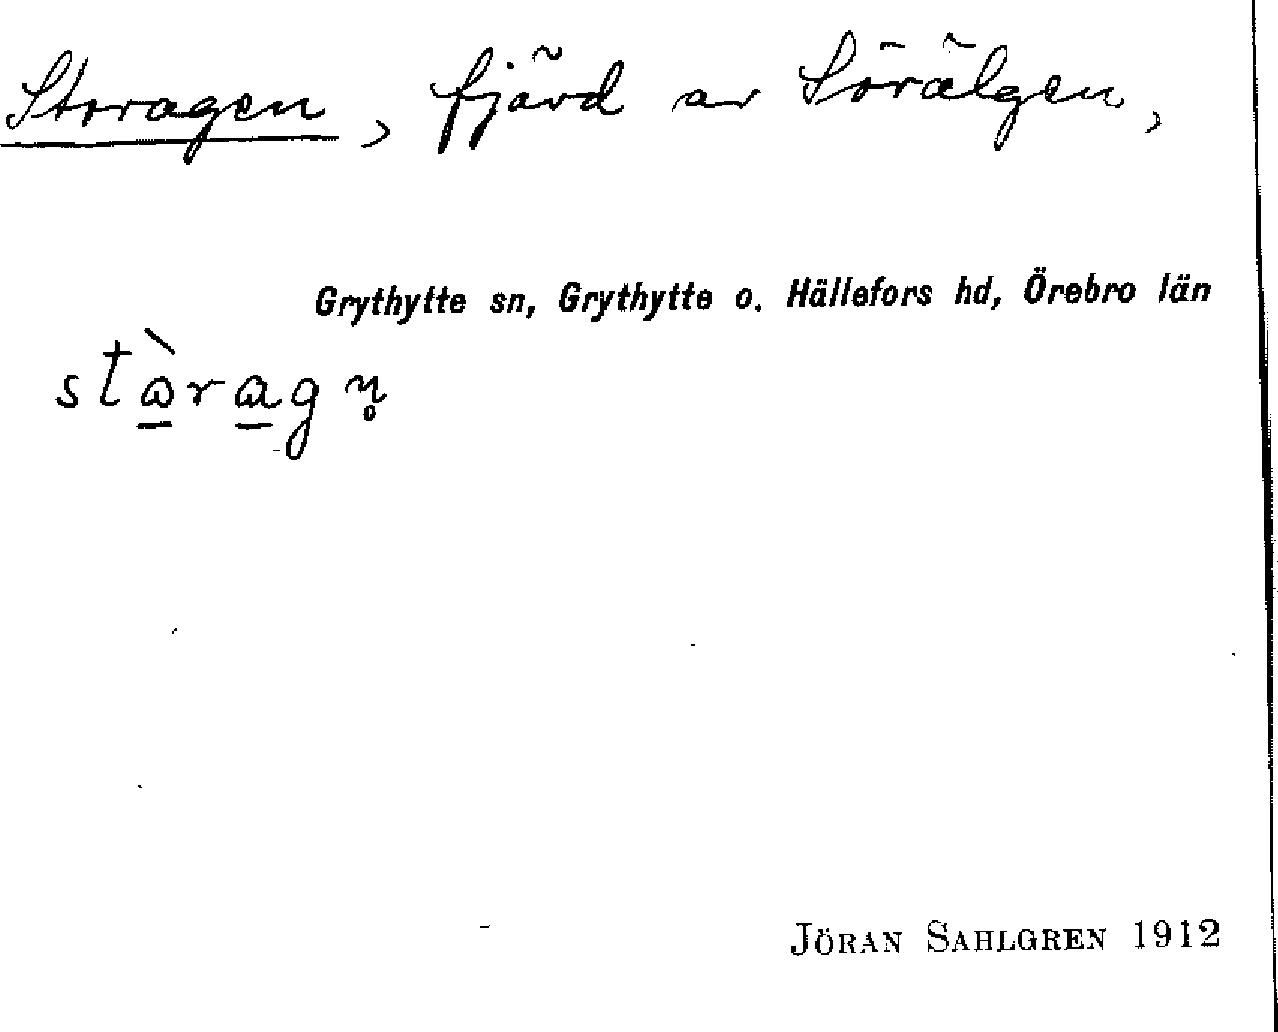 Storagen, fjärd av Sörälgen,
Grythytte sn, Grythytte o. Hällefors hd, Örebro län
JÖRAN SAHLGREN 1912